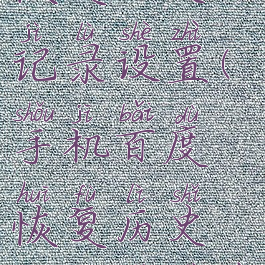 jì lù shè zhì
记录设置(
shǒu jī bǎi dù
手机百度
huī fù lì shǐ
恢复历史